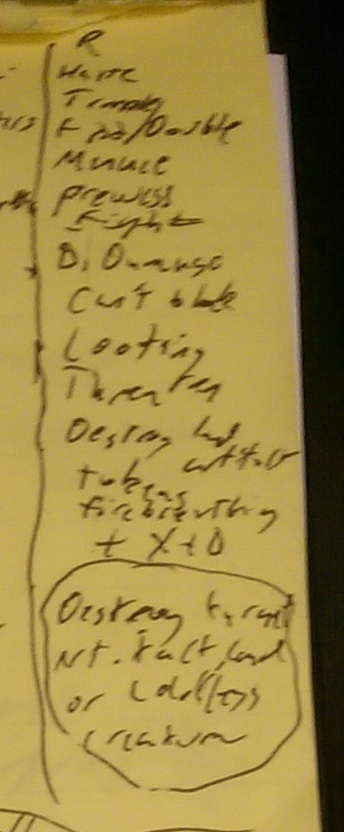 R
Haste
Trample
First/Double
Menace
prowess
Fight
D. Damage
Can't block
Looting
Threaten
Destroy land
artifact
tokens
firebreathing
+X+0
Destroy target
Art. fact, land
or colorless
creature